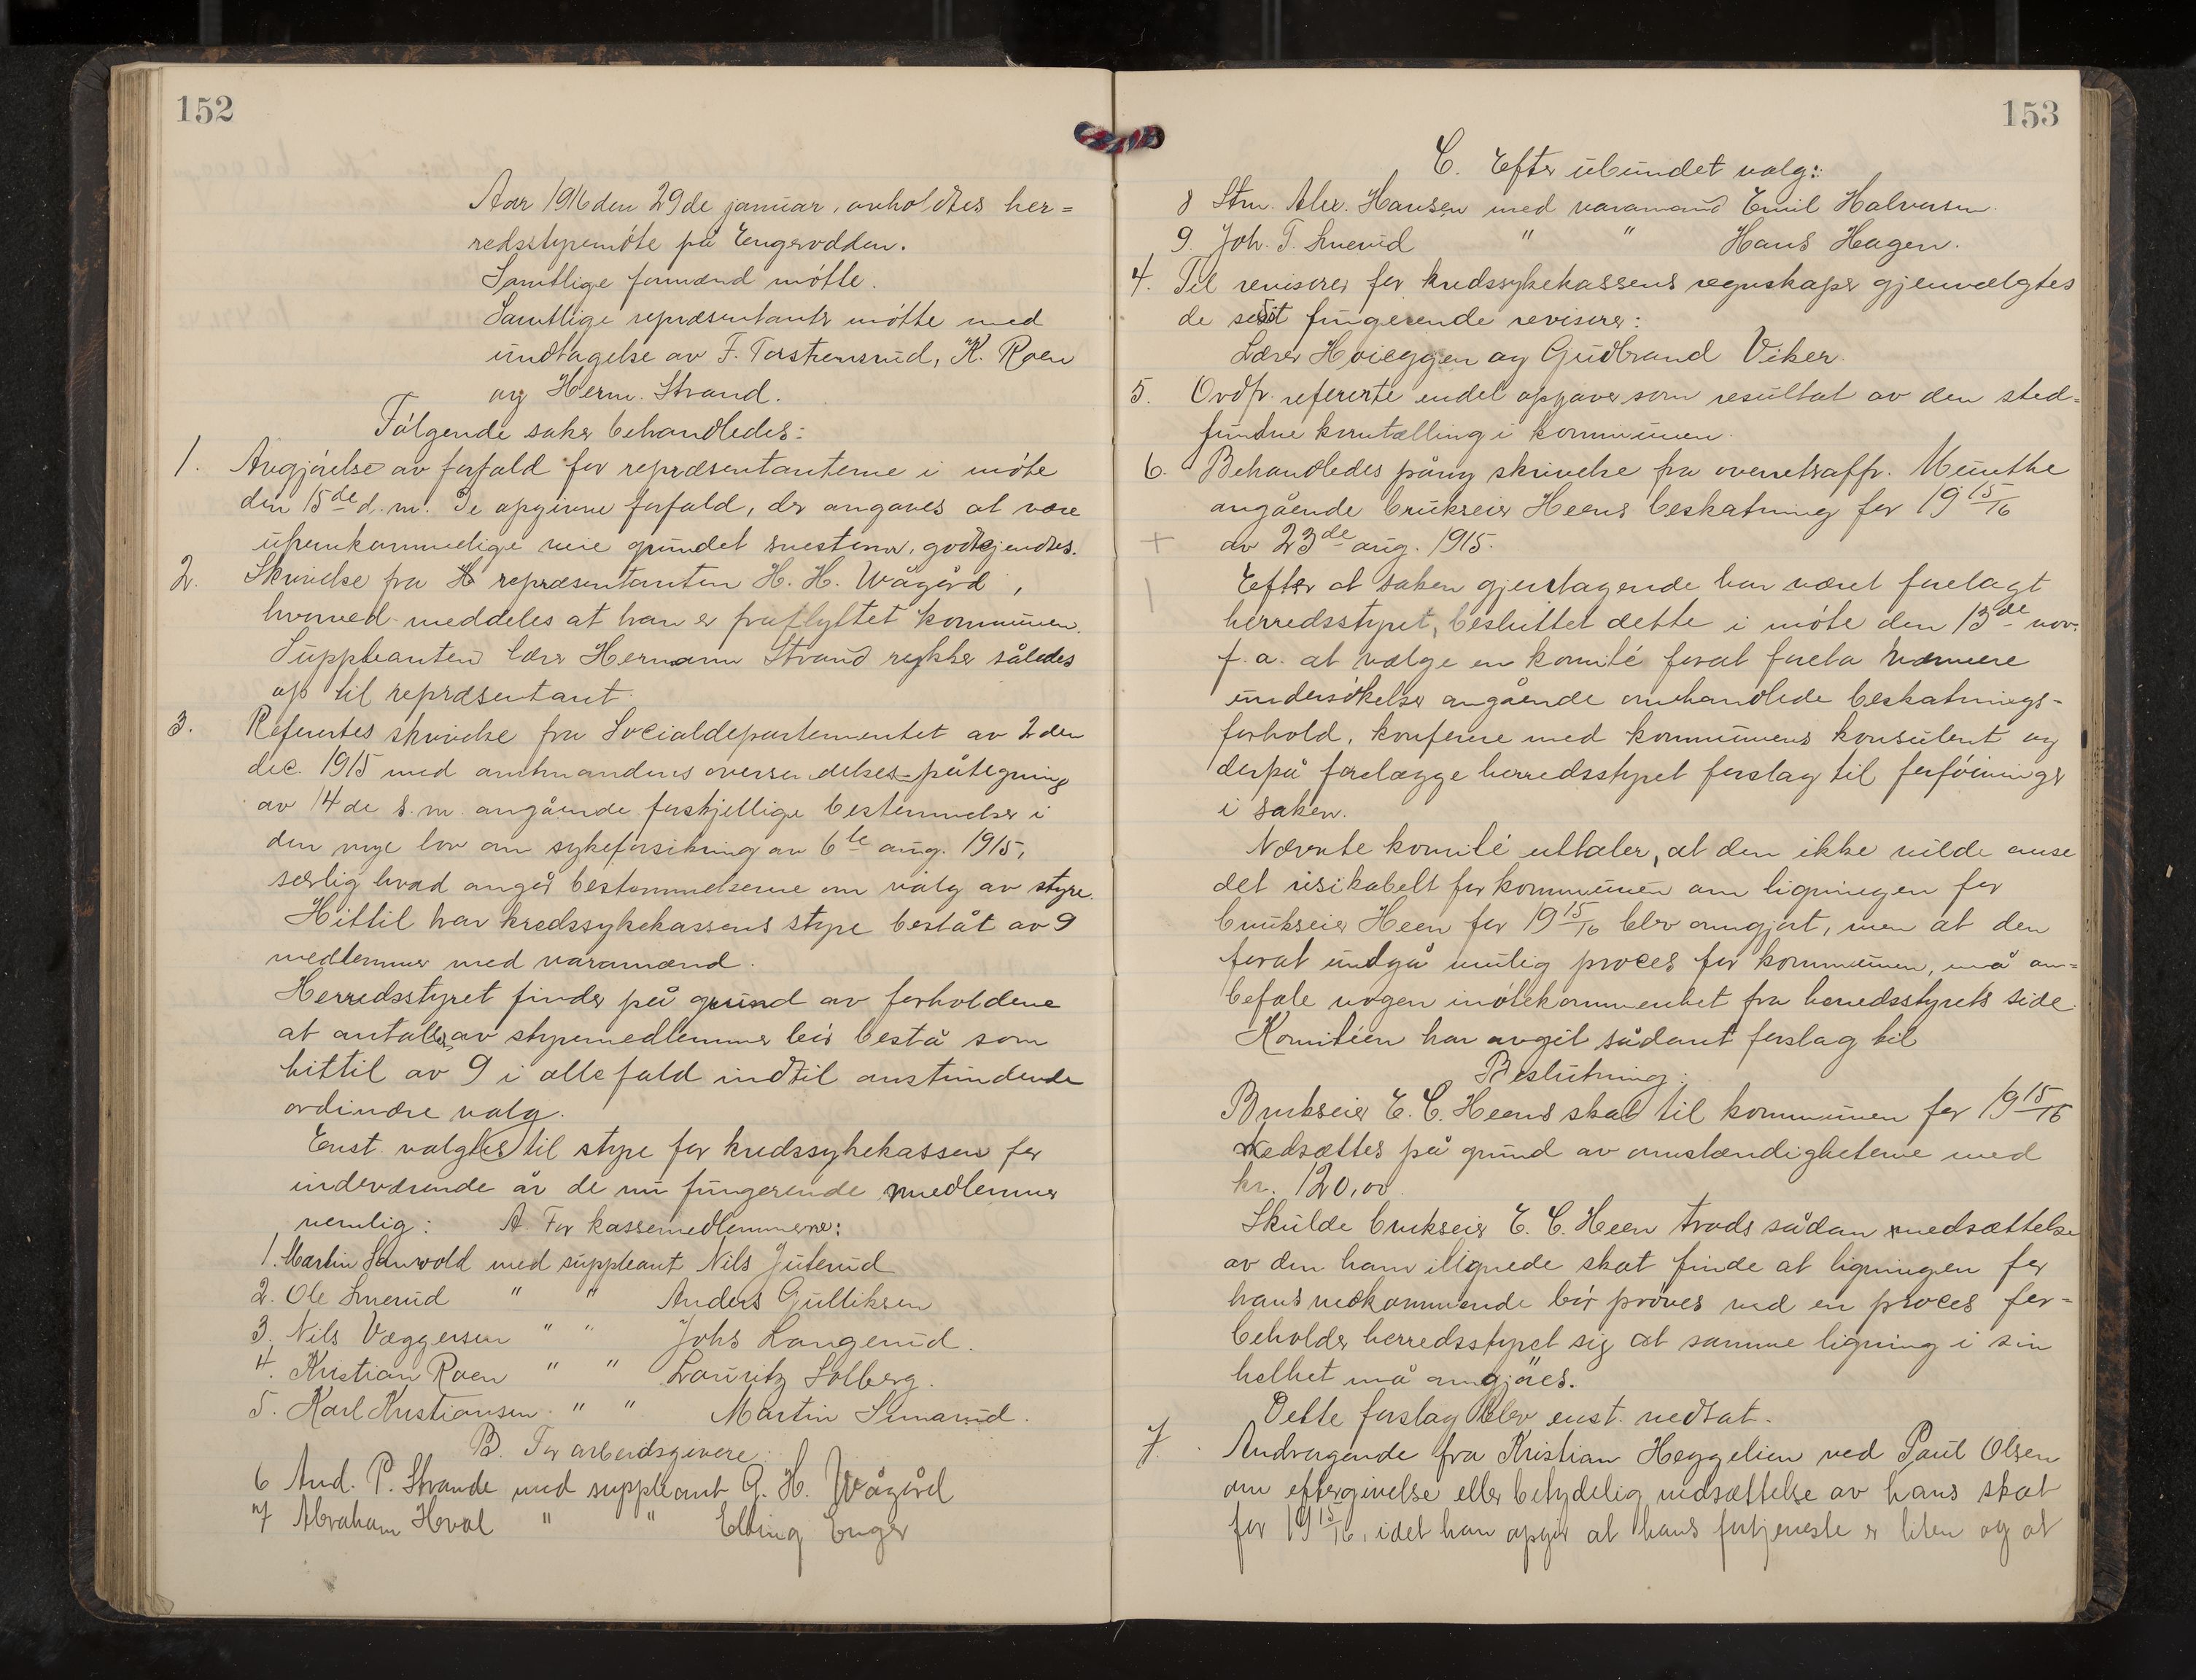 152
Aar 1916 den 29de januar, avholdtes her=
redsstyremöte på Engerodden.
Samtlige formænd mötte.
Samtlige repræsentanter mötte med
undtagelse av F. Torstensrud, K. Roen
og Herm. Strand.
Fölgende saker behandledes:
1. Avgjörelse av forfald for repræsentanterne i möte
den 15de d.m. De opgivne forfald, der angaves at være
ufremkommelige veie grundet snestorm, godkjendtes.
2. Skrivelse fra repræsentanten H. H. Wågård,
hvorved meddeles at han er fraflyttet kommunen.
Suppleanten lærer Hermann Strand rykker således
op til repræsentant.
3. Refereertes skrivelse fra Socialdepartementet av 2den
dec. 1915 med amtmandens oversendelses-påtegning
av 14de s.m. angående forskjellige bestemmelser i
den nye lov om sykeforsikring av 6te aug. 1915,
særlig hvad angår bestemmelserne om valg av styre.
Hittil har kredssykekassens styre bestått av 9
medlemmer med varamænd.
Herredsstyret finder på grund av forholdene
at antallet av styremedlemmer bör bestå som
hittil av 9 i allefald indtil anstundende
ordinære valg.
Enst. valgtes til styre for kredssykekassen for
indeværende år de nu fungerende medlemmer
nemlig: A. For kassemedlemmerne:
1. Martin Sanvold med suppleant Nils Juterud
2. Ole Smerud " " Anders Gulliksen
3. Nils Væggersen " " Johs Langerud.
4. Kristian Roen " " Lauritz Solberg.
5. Karl Kristiansen " " Martin Semerud.
B. For arbeidsgivere:
6 And. P. Strande med suppleant G. H. Wågård
7 Abraham Hval " " Elling Enger
153
C. Efter ubundet valg:
8 Stm. Alex. Hansen med varamand Emil Halvorsen.
9. Joh. T. Smerud " " Hans Hagen.
4. Til revisorer for kredssykekassens regnskaper gjenvalgtes
de sidst fungerende revisorer:
Lærer Hoieggen og Gudbrand Viker.
5. Ordfr. refererte endel opgaver som resultat av den sted=
fundne korntælling i kommunen.
6. Behandledes påny skrivelse fra overretssakfr. Munthe
angående brukseier Heens beskatning for 19 15/16
+ av 23de aug. 1915.
Efter at saken gjentagende har været forelagt
herredsstyret, besluttet dette i möte den 13de nov.
f.a. at vælge en komité forat foreta nærmere
undersökelser angående omhandlede beskatnings-
forhold, konferere med kommunens konsulent og
derpå forelægge herredsstyret forslag til forföininger
i saken.
Nævnte komité uttaler, at den ikke vilde anse
det risikabelt for kommunen om ligningen for
brukseier Heen for 19 15/16 blev omgjort, men at den
forat undgå mulig proces for kommunen, må an=
befale nogen imötekommenhet fra herredsstyrets side.
Komitéen har avgit sådant forslag til
Beslutning:
Brukseier E. C. Heens skat til kommunen for 19 15/16
nedsættes på grund av omstændigheterne med
kr. 120,00.
Skulde brukseier E. C. Heen trods sådan nedsættelse
av den ham ilignede skat finde at ligningen for
hans vedkommende bör pröves ved en proces for=
beholder herredsstyret sig at samme ligning i sin
helhet må omgjöres.
Dette forslag blev enst. vedtat.
7. Andragende fra Kristian Heggelien ved Paul Olsen
om eftergivelse eller betydelig nedsættelse av hans skat
for 19 15/16, idet han opgir at hans fortjeneste er liten og at